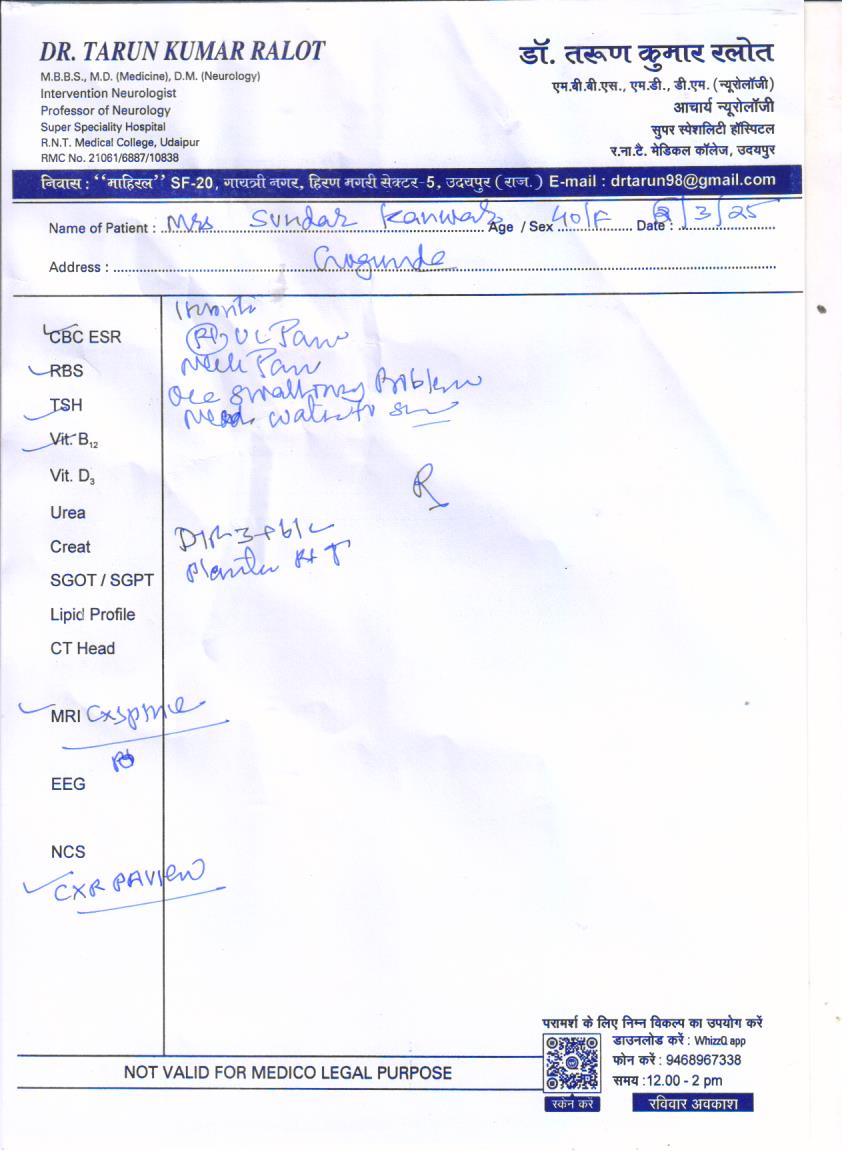 DR. TARUN KUMAR RALOT
M.B.B.S., M.D. (Medicine), D.M. (Neurology)
Intervention Neurologist
Professor of Neurology
Super Speciality Hospital
R.N.T. Medical College, Udaipur
RMC No. 21061/6887/10838
डॉ. तरूण कुमार रलोत
एम.बी.बी.एस., एम.डी., डी.एम. (न्यूरोलॉजी)
आचार्य न्यूरोलॉजी
सुपर स्पेशलिटी हॉस्पिटल
र.ना.टै. मेडिकल कॉलेज, उदयपुर
निवास : "माहिरल" SF-20, गायत्री नगर, हिरण मगरी सेक्टर-5, उदयपुर (राज.) E-mail : drtarun98@gmail.com
Name of Patient : Mrs Sundar Kanwar Age / Sex 40/F Date : 2/3/25
Address :
CBC ESR
RBS
TSH
Vit. B12
Vit. D3
Urea
Creat
SGOT / SGPT
Lipid Profile
CT Head
MRI Cx spine
EEG
NCS
CXR PA VIEW
Rt UL Pain
Neck Pain
Occ swallowing Problem
Need water to
R
Planter
परामर्श के लिए निम्न विकल्प का उपयोग करें
डाउनलोड करें : WhizzQ app
फोन करें : 9468967338
समय :12.00 - 2 pm
स्कैन करें
रविवार अवकाश
NOT VALID FOR MEDICO LEGAL PURPOSE